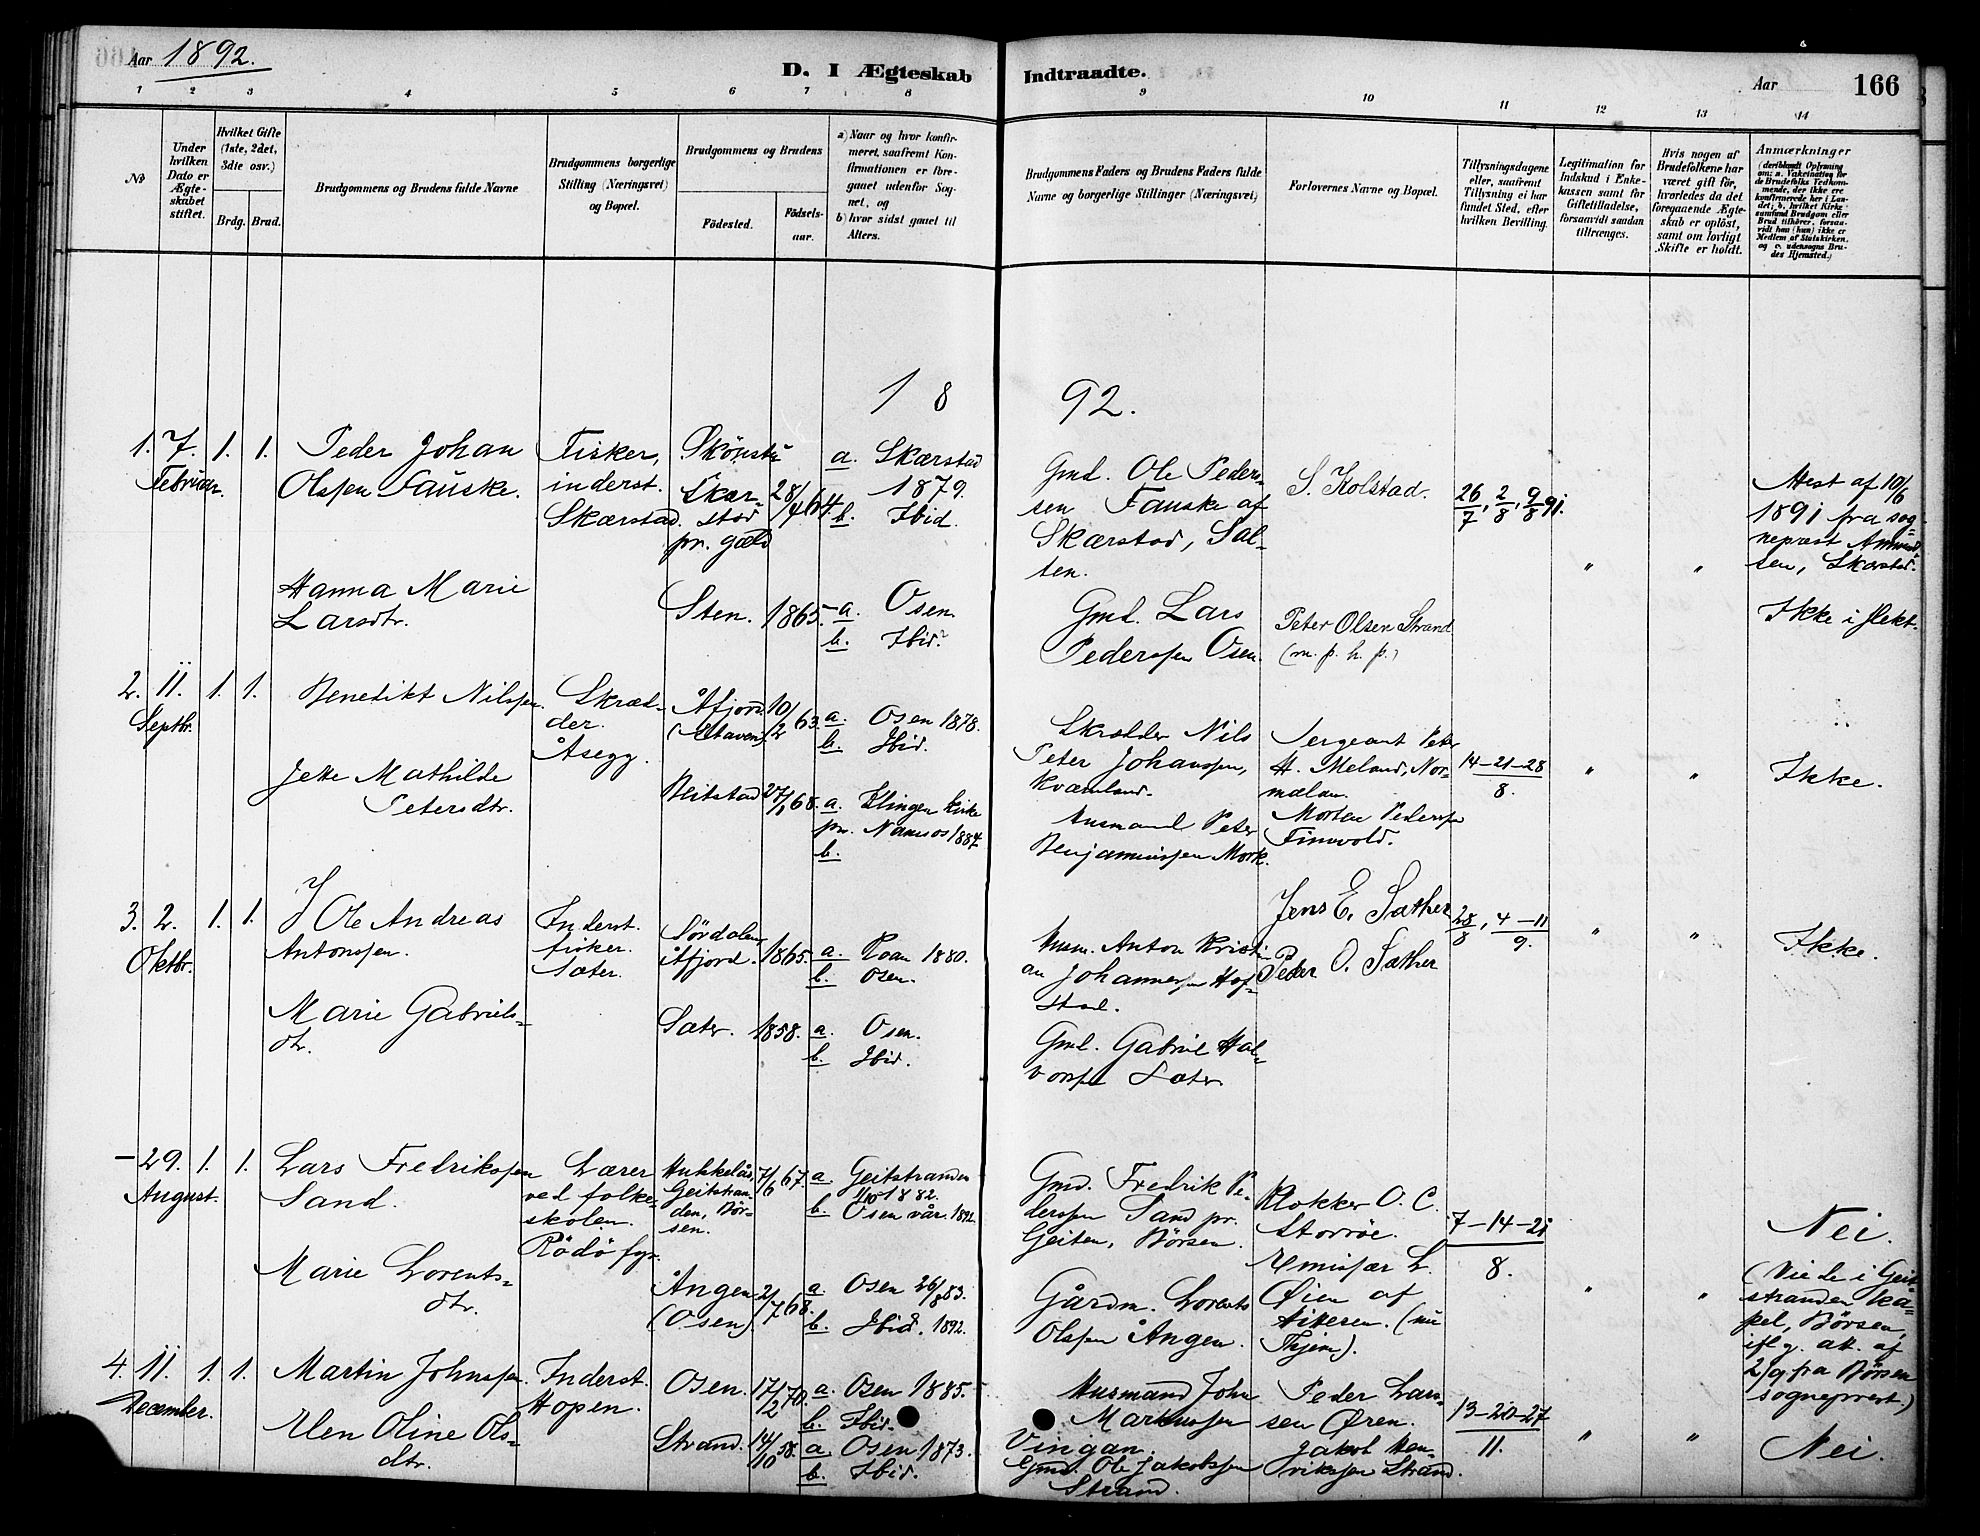 Aar 1892.
D. I Ægteskab Indtraadte.
Aar 166
1 2 3 4 5 6 7 8 9 10 11 12 13 14
No
Under hvilken Dato er Ægteskabet stiftet.
Hvilket Gifte (1ste, 2det, 3die osv.)
Brdg. Brud.
Brudgommens og Brudens fulde Navne
Brudgommens borgerlige Stilling (Næringsvei) og Bopæl.
Brudgommens og Brudens
Fødested. Fødselsaar.
a) Naar og hvor konfirmeret, saafremt Konfirmationen er foregaaet udenfor Sognet, og
b) hvor sidst gaaet til Alters.
Brudgommens Faders og Brudens Faders fulde Navne og borgerlige Stillinger (Næringsvei)
Forlovernes Navne og Bopæl.
Tillysningsdagene eller, saafremt Tillysning ei har fundet Sted, efter hvilken Bevilling.
Legitimation for Indskud i Enkekassen samt for Giftetilladelse, forsaavidt saadan tiltrænges.
Hvis nogen af Brudefolkene har været gift før, hvorledes da det foregaaende Ægteskab er opløst, samt om lovligt Skifte er holdt.
Anmærkninger
(deriblandt Oplysning om: a. Vakcination for de Brudefolks Vedkommende, der ikke ere konfirmerede her i Landet; b. hvilket Kirkesamfund Brudgom eller Brud tilhører, forsaavidt han (hun) ikke er Medlem af Statskirken, og c. udensogns Brudes Hjemsted.)
1892.
1. 7. Februar. 1. 1.
Peder Johan
Olssen Fauske.
Fisker,
inderst.
Skærstad.
Skær-
stad
pr. gæld
28/4 64.
a. Skærstad
1879.
b. Ibid.
Gmd. Ole Peder-
sen Fauske af
Skærstad, Sal-
ten.
S. Kolstad.
26/7, 2/8, 9/8 91.
" "
Attest af 10/6
1891 fra sog-
nepræst Amund-
sen, Skærstad.
Hanna Marie
Larsdtr.
Sten. 1865.
a. Osen.
b. Ibid.
Gmd. Lars
Pederssen Osen.
Peter Olsen Strand
(m. p. h. p.)
Ikke i slekt.
2. 11. Septbr. 1. 1.
Benedikt Nilssen.
Skræd-
der.
Åsegg.
Åfjord
10/2 63.
a. Osen 1878.
b. Ibid.
Skrædder Nils
Peter Johanssen,
Kvæmland.
Sergeant Peter
H. Meland, Nor-
melan.
14-21-28
8.
" "
Ikke.
Jette Mathilde
Petersdtr.
Beitstad 27/1 68.
a. Klingen kirke
pr. Namsos 1884.
b.
Ausmand Peter
Benjaminssen Mork.
Morten Pederssen
Finnvold.
3. 2. Oktbr. 1. 1.
Ole Andreas
Antonssen.
Inderst.
fisker.
Sæter.
Sördalen,
Åfjord. 1865.
a. Roan 1880.
b. Osen.
Husm. Anton Kristi-
an Johannessen Hof-
stad.
Jens E. Sæther
Peder O. Sæther
28/8, 4-11
9.
" "
Ikke.
Marie Gabriels-
dtr.
Sæter. 1858.
a. Osen.
b. Ibid.
Gmd. Gabriel Hal-
vorssen Sæter
- 29. August. 1. 1.
Lars Fredrikssen
Sand.
Lærer
ved folke-
skolen.
Rödö fyr.
Hukkelås,
Geitstran-
den, Bør-
sen.
7/6 67.
a. Geitstranden
1/10 1882.
b. Osen vår 1892.
Gmd. Fredrik Pe-
derssen Sand pr.
Geiten, Børsen.
Klokker O. C.
Storrøe.
7-14-21
8.
Nei.
(Viede i Geit-
stranden ka-
pel, Børsen,
iflg. att. af
2/9 fra Børsen
sogneprest.)
Marie Lorents-
dtr.
Ången
(Osen).
2/7 68.
a. Osen 26/8 83.
b. Ibid. 1892.
Gårdm. Lorents
Olssen Ången.
Emissær L.
Øien af
Hitteren. (nu
Thjem).
" "
4. 11. December. 1. 1.
Martin Johnssen.
Inderst.
Hopen.
Osen. 17/2 70.
a. Osen 1885.
b. Ibid.
Husmand John
Markussen
Vingan.
Peder Lars-
sen Øren.
13-20-27
11.
" "
Nei.
Elen Oline Ols-
dtr.
Strand. 14/10 58.
a. Osen 1873.
b. Ibid.
Gmd. Ole Jakobssen
Strand.
Jakob Hen-
rikssen Strand.